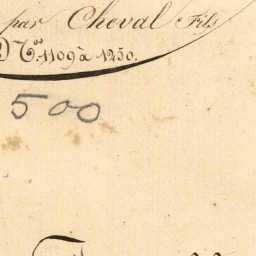 par Cheval Fils
Nos. 1109 à 1250.
500